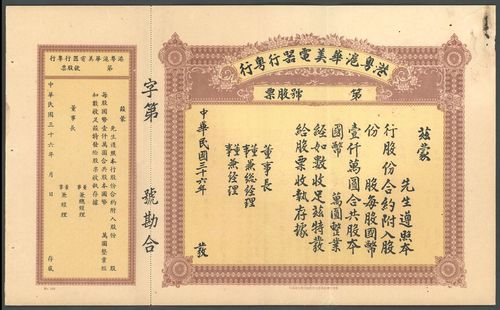 港粵滬華美電器行粵行
第 號股票
茲蒙
先生遵照本
行股份合約附入股
份 股每股國幣
壹仟萬圓合共股本
國幣 萬圓整業
經如數收足茲特發
給股票收執存據
董事長
董事兼總經理
董事兼經理
中華民國三十六年 發
字第 號勘合
港粵滬華美電器行粵行
第 號股票
茲蒙
先生遵照本行股份合約附入股份 股
每股國幣壹仟萬圓合共股本國幣 萬圓整業經
如數收足茲特發給股票收執存據
董事長
董事兼總經理
董事兼經理
中華民國三十六年 月 日